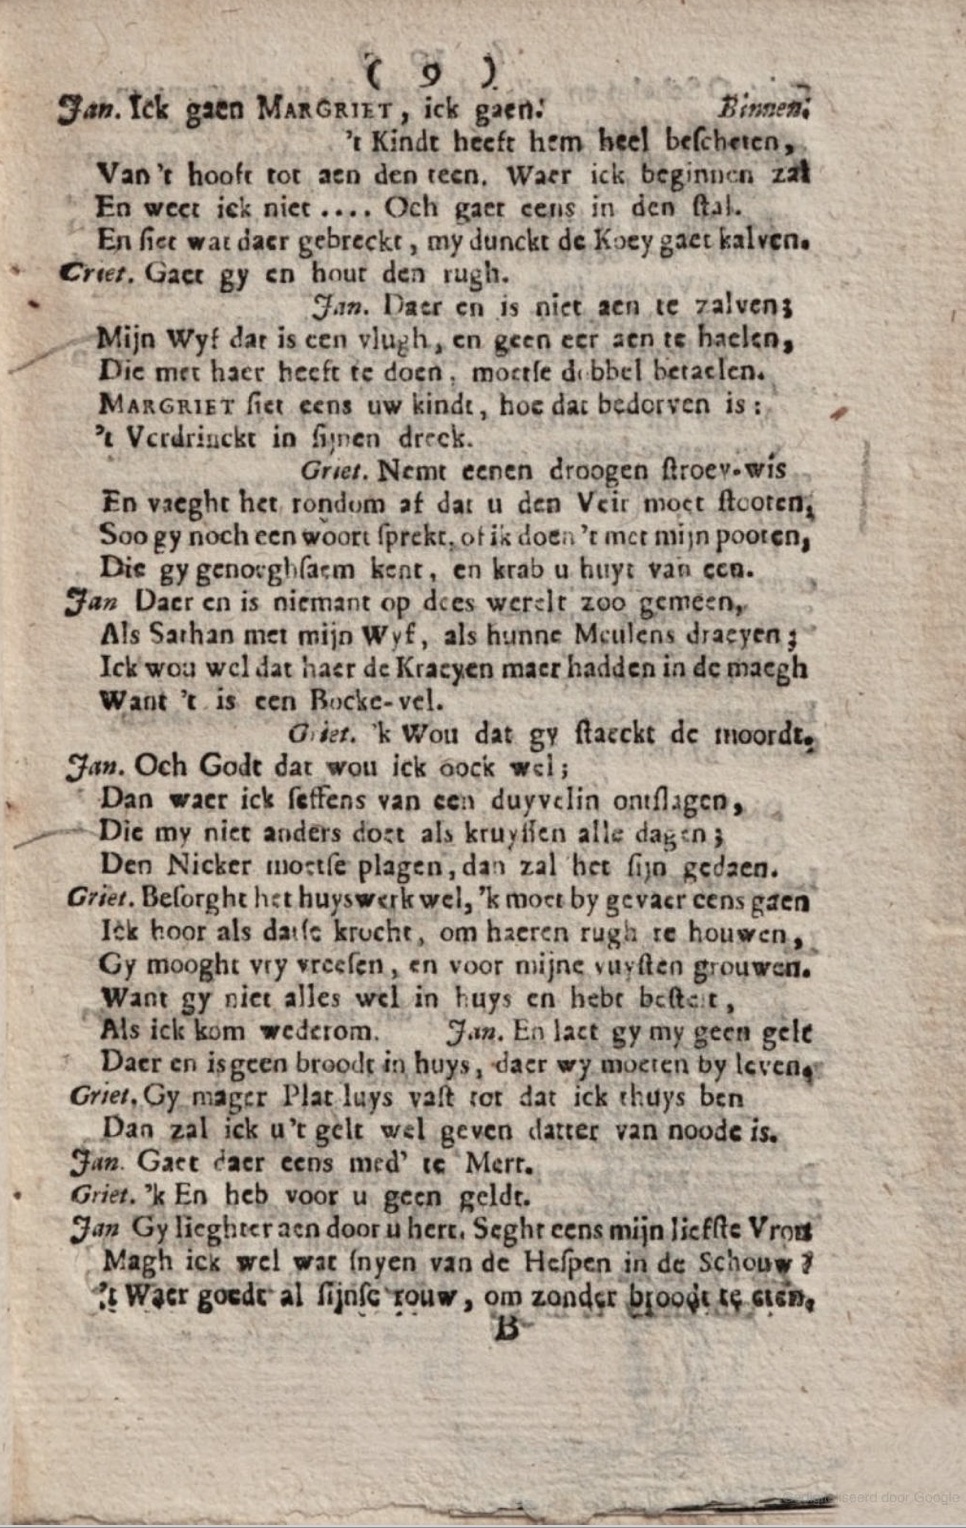 ( 9 )
Jan. Ick gaen MARGRIET, ick gaen. Binnen.
't Kindt heeft hem heel bescheten,
Van 't hooft tot aen den teen. Waer ick beginnen zal
En weet ick niet .... Och gaet eens in den stal.
En siet wat daer gebreckt, my dunckt de Koey gaet kalven.
Griet. Gaet gy en hout den rugh.
Jan. Daer en is niet aen te zalven;
Mijn Wyf dat is een vlugh, en geen eer aen te haelen,
Die met haer heeft te doen, moetse dobbel betaelen.
MARGRIET siet eens uw kindt, hoe dat bedorven is:
't Verdrinckt in sijnen dreck.
Griet. Nemt eenen droogen stroey-wis
En vaeght het rondom af dat u den Veir moet stooten,
Soo gy noch een woort sprekt, of ik doen 't met mijn pooten,
Die gy genoeghsaem kent, en krab u huyt van een.
Jan Daer en is niemant op dees werelt zoo gemeen,
Als Sathan met mijn Wyf, als hunne Meulens draeyen;
Ick wou wel dat haer de Kraeyen maer hadden in de maegh
Want 't is een Bocke-vel.
Griet. 'k Wou dat gy staeckt de moordt.
Jan. Och Godt dat wou ick oock wel;
Dan waer ick seffens van een duyvelin ontslagen,
Die my niet anders doet als kruyssen alle dagen;
Den Nicker moetse plagen, dan zal het sijn gedaen.
Griet. Besorght het huyswerk wel, 'k moet by gevaer eens gaen
Ick hoor als datse krocht, om haeren rugh te houwen,
Gy mooght vry vreesen, en voor mijne vuysten grouwen.
Want gy niet alles wel in huys en hebt bestelt,
Als ick kom wederom. Jan. En laet gy my geen gelt
Daer en is geen broodt in huys, daer wy moeten by leven.
Griet. Gy mager Plat luys vast tot dat ick thuys ben
Dan zal ick u 't gelt wel geven datter van noode is.
Jan. Gaet daer eens med' te Mert.
Griet. 'k En heb voor u geen geldt.
Jan Gy lieghter aen door u hert. Seght eens mijn liefste Vrou
Magh ick wel wat snyen van de Hespen in de Schouw?
't Waer goedt al sijnse rouw, om zonder broodt te eten,
B